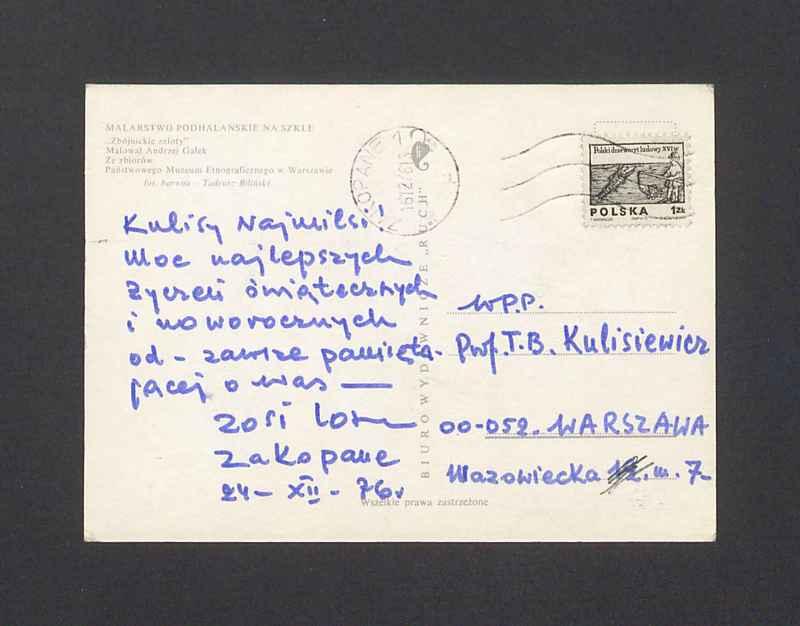 MALARSTWO PODHALAŃSKIE NA SZKLE
„Zbójnickie zaloty”
Malował Andrzej Galek
Ze zbiorów
Państwowego Muzeum Etnograficznego w Warszawie
fot. barwna – Tadeusz Biliński
Kulisy Najmilsi!
Moc najlepszych
życzeń świątecznych
i noworocznych
od – zawsze pamięta-
jącej o was —
Zosi
Zakopane
24 – XII – 76 r
BIURO WYDAWNICZE „RUCH”
Wszelkie prawa zastrzeżone
ZAKOPANE 1
Polski drzeworyt ludowy XVI w
POLSKA 1Zł
W.P.P.
Prof. T.B. Kulisiewicz
00-052. WARSZAWA
Mazowiecka m. 7